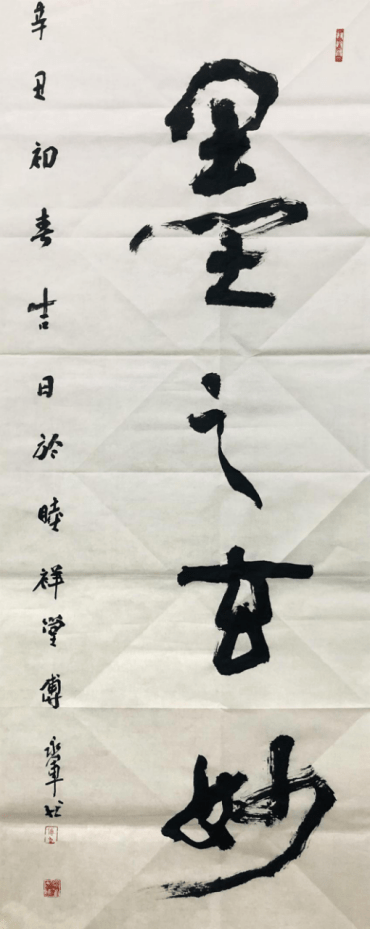 墨之玄妙
辛丑初春吉日於睦祥堂傅永军书